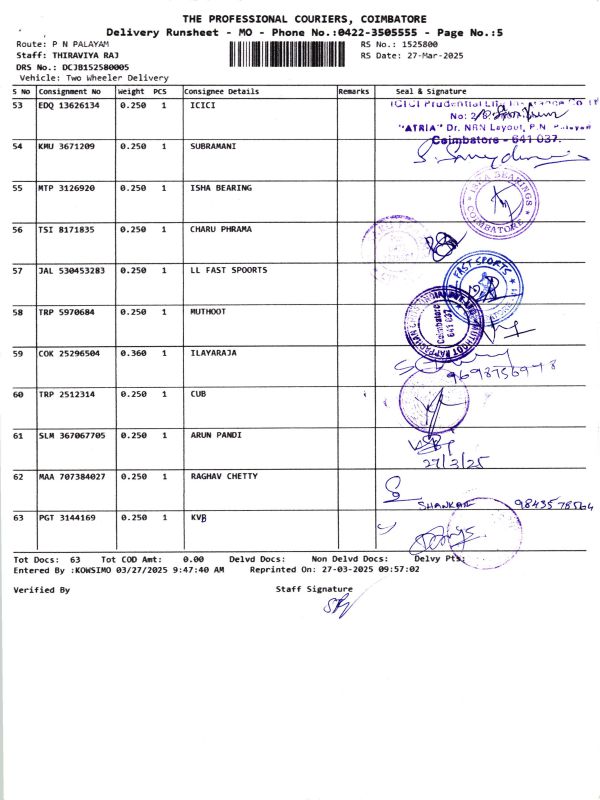 THE PROFESSIONAL COURIERS, COIMBATORE
Delivery Runsheet - MO - Phone No.:0422-3505555 - Page No.:5
Route: P N PALAYAM RS No.: 1525800
Staff: THIRAVIYA RAJ RS Date: 27-Mar-2025
DRS No.: DCJB152580005
Vehicle: Two Wheeler Delivery
S No Consignment No Weight PCS Consignee Details Remarks Seal & Signature
53 EDQ 13626134 0.250 1 ICICI
ICICI Prudential Life Insurance Co
No: 2/
"ATRIA" Dr. NRN Layout, P.N. Palayam
Coimbatore - 641 037.
54 KMU 3671209 0.250 1 SUBRAMANI
55 MTP 3126920 0.250 1 ISHA BEARING
ISHA BEARINGS
COIMBATORE
56 TSI 8171835 0.250 1 CHARU PHRAMA
57 JAL 530453283 0.250 1 LL FAST SPOORTS
FAST SPORTS
58 TRP 5970684 0.250 1 MUTHOOT
Coimbatore
641 037
59 COK 25296504 0.360 1 ILAYARAJA
60 TRP 2512314 0.250 1 CUB
61 SLM 367067705 0.250 1 ARUN PANDI
27/3/25
62 MAA 707384027 0.250 1 RAGHAV CHETTY
SHANKAR 9843578564
63 PGT 3144169 0.250 1 KVB
Tot Docs: 63 Tot COD Amt: 0.00 Delvd Docs: Non Delvd Docs: Delvy Pts:
Entered By :KOWSIMO 03/27/2025 9:47:40 AM Reprinted On: 27-03-2025 09:57:02
Verified By Staff Signature